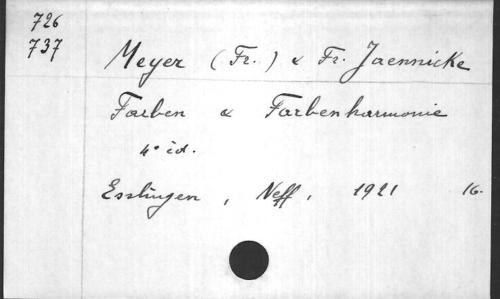 726
737
Meyer (Fr.) & Fr. Jaennicke
Farben & Farbenharmonie
4° éd.
Esslingen, Neff, 1921 16.